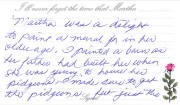 I'll never forget the time that Martha
Martha was a delight
to paint a mural for in her
older age. I painted a barn as
her father had built her when
she was young, to house her
pidgeons. I made sure to paint
the pidgeons, but just the